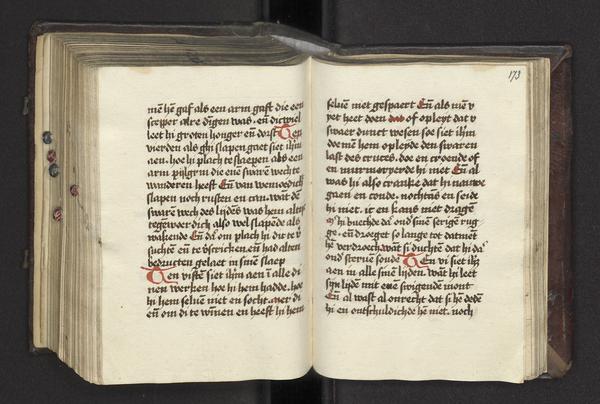 mē hē gaf als een arm gast die een
scepper alre dīngen was. eñ dicwiel
leet hi groten honger eñ dorst Ten
vierden als ghi slapen gaet siet ihm
aen. hoe hi plach te slaepen als een
arm pijlgrim die ene sware wech te
wanderen heeft Eñ van vermoedich
slapen noch rusten en can. wāt dē
sware wech des lijdēs was hem altijt
tegenwoerdich also wel slapēde als
wakende Eñ dā om plach hi dic te v
suchten eñ te vscricken. eñ had alten
bedructen gelaet in sinē slaep
Ten vijfstē siet ihm aen ī alle di
nen werken hoe hi hem hadde. hoe
hi hem seluē niet en socht. mer di
eñ om di te wīnen en heeft hi hem
173
seluē niet gespaert Eñ als mē v
yet heet doen of op leyt dat v
swaer dunct wesen soe siet ihm
doe mē hem opleyde den swaren
last des cruces. doe en croende of
en murmureerde hi niet Eñ al
was hi also crancke dat hi nauwe
gaen en conde. nochtās en seide
hi niet. ic en kans niet dragē
hi buechde dā ond sinen serige rug
ge. eñ droeget so lange tot datmēt
hē verdroech. wāt si duchtē dat hi dā
ond steruē soude Ten vi siet ihm
aen in alle sinē lijden. wāt hi leet
sijn lijdē mit enē swigendē mont
Eñ al wast al onrecht dat si hē dedē
hi en ontschuldichde hē niet. noch